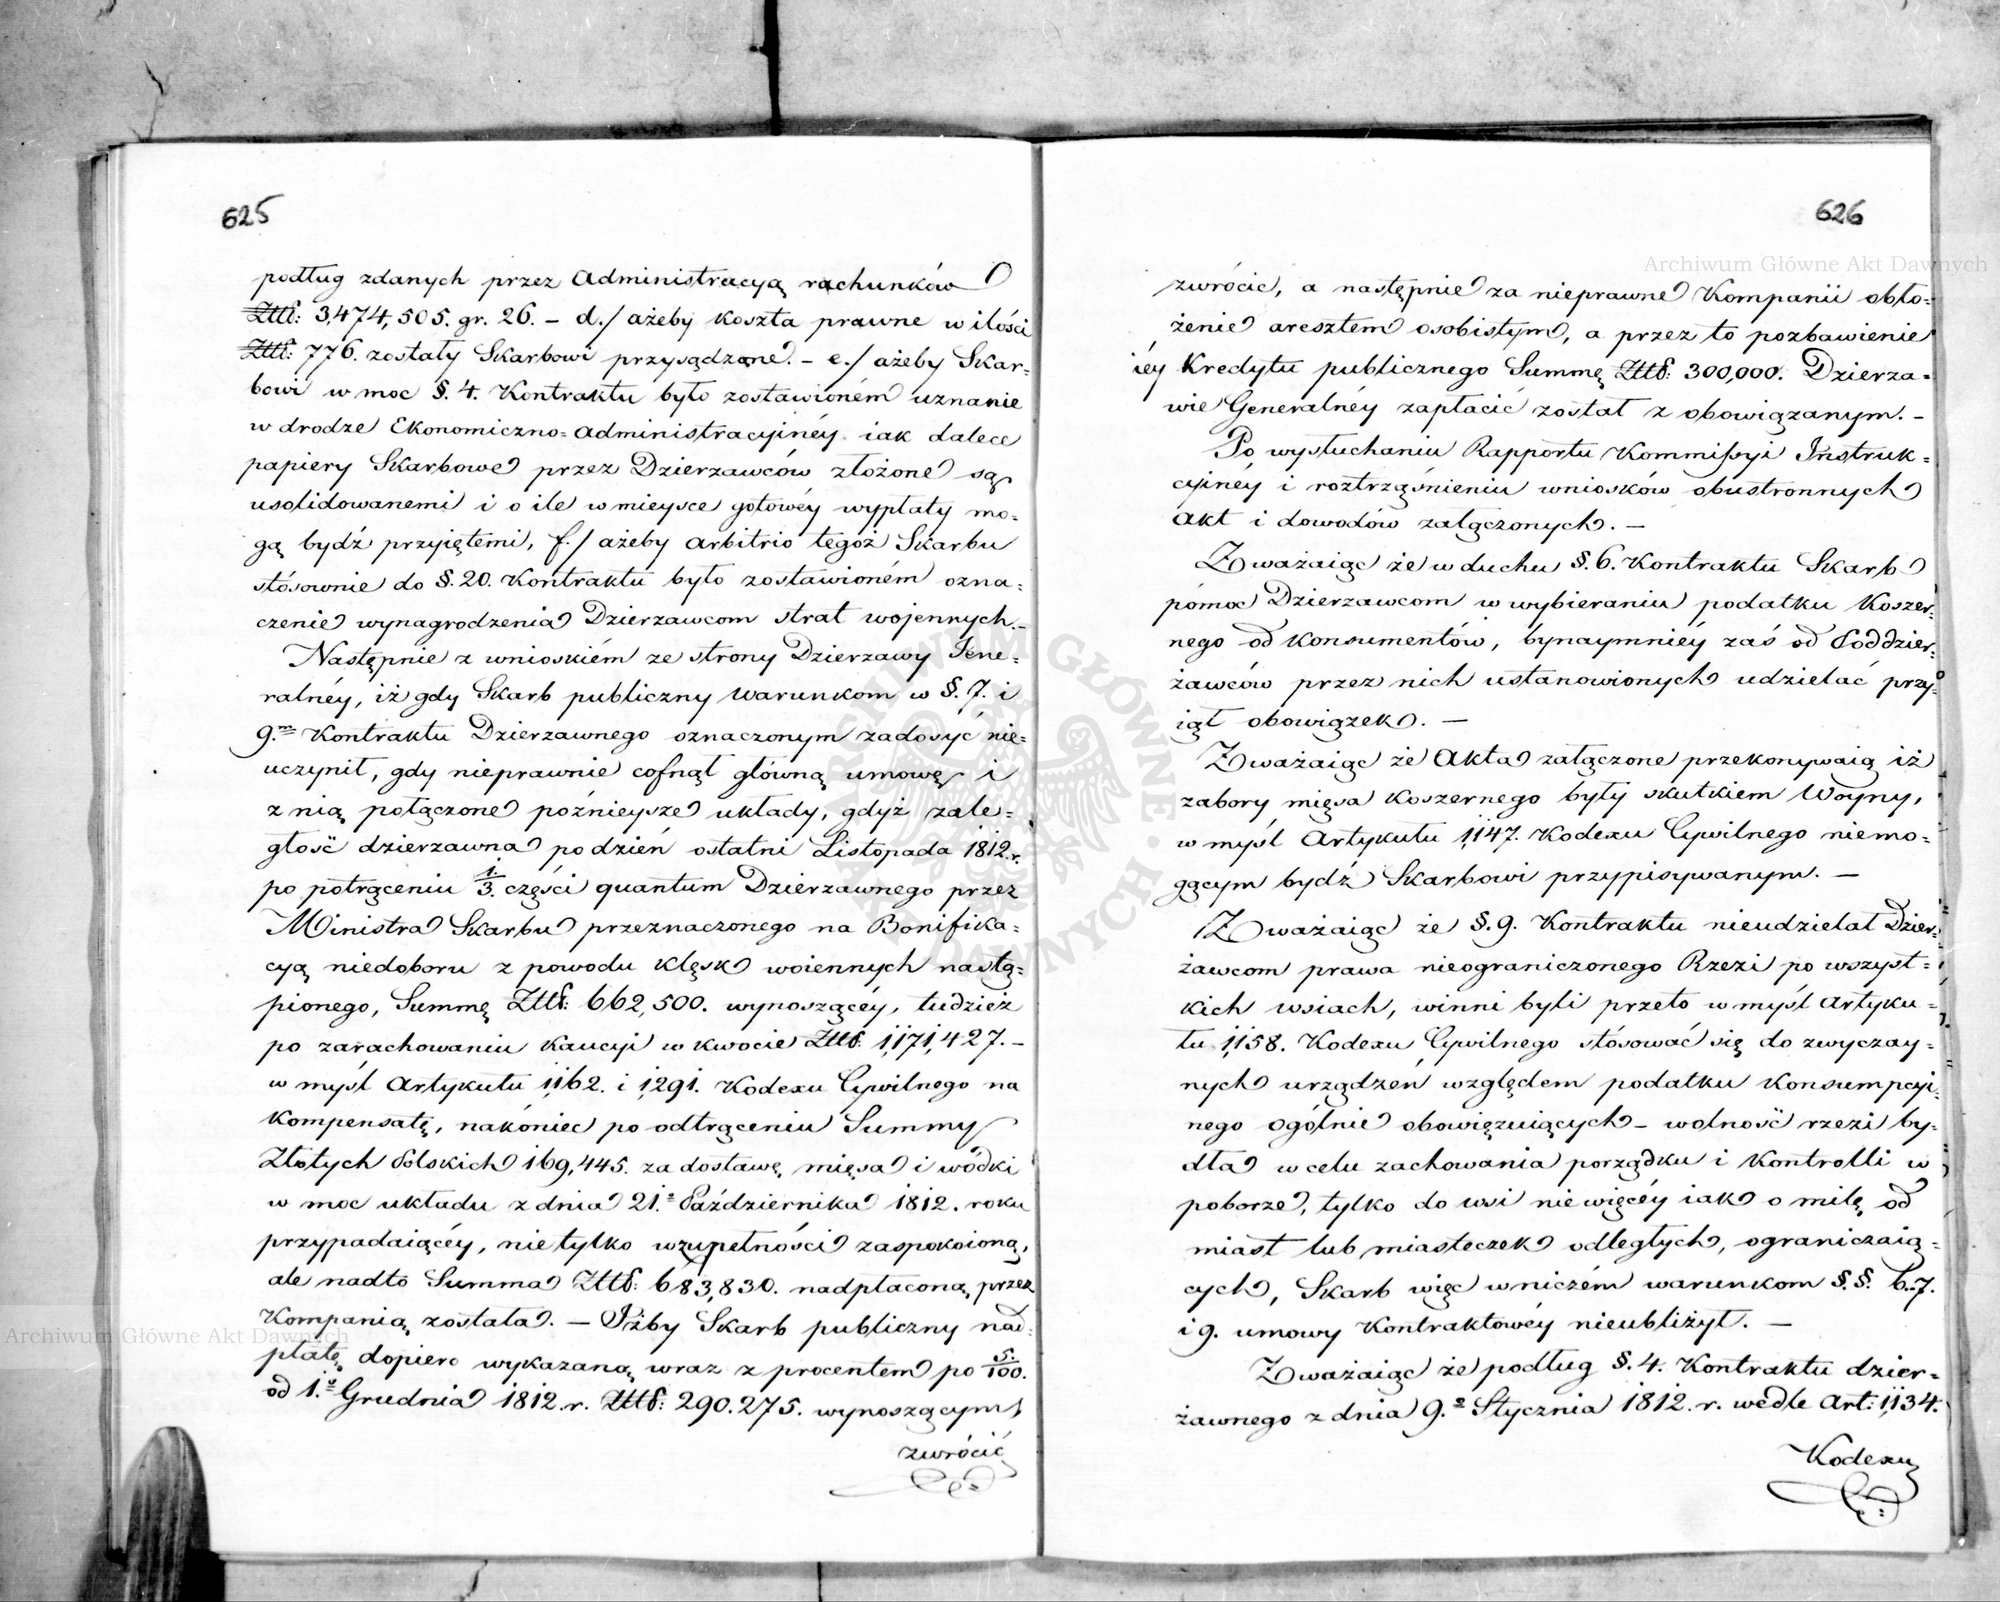 625
podług zdanych przez Administracyą rachunków
Zttł: 3,474,505. gr. 26. – d./ ażeby koszta prawne w ilości
Zttł: 776. zostały Skarbowi przysądzone. – e./ ażeby Skar=
bowi w moc §. 4. Kontraktu było zostawioném uznanie
w drodze Ekonomiczno=Administracyinéy iak dalece
papiery Skarbowe przez Dzierzawców złożone są
usolidowanemi i o ile w mieysce gotowéy wypłaty mo=
gą bydź przyiętemi, f./ ażeby arbitrio tegoż Skarbu
stósownie do §. 20. Kontraktu było zostawioném ozna=
czenie wynagrodzenia Dzierzawcom strat wojennych. –
Następnie z wnioskiém ze strony Dzierzawy Jene=
ralnéy, iż gdy Skarb publiczny warunkom w §. 7. i
9.m Kontraktu Dzierzawnego oznaczonym zadosyć nie=
uczynił, gdy nieprawnie cofnął główną umowę i
z nią połączone poźnieysze układy, gdyż zale=
głość dzierzawna po dzień ostatni Listopada 1812.r.
po potrąceniu 1/3. części quantum Dzierzawnego przez
Ministra Skarbu przeznaczonego na Bonifika=
cyą niedoboru z powodu klęsk woiennych nastą=
pionego, Summę Zttł: 662,500. wynoszącéy, tudzież
po zarachowaniu Kaucyi w kwocie Zttł: 1,171,427. –
w myśl Artykułu 1,162. i 1,291. Kodexu Cywilnego na
kompensatę, nakóniec po odtrąceniu Summy
Złotych Polskich 169,445. za dostawę mięsa i wódki
w moc układu z dnia 21.º Października 1812. roku
przypadaiącéy, nie tylko w zupełności zaspokoioną,
ale nadto Summa Zttł: 683,830. nadpłaconą przez
Kompanią została. – Iżby Skarb publiczny nad=
płatę dopiero wykazaną wraz z procentem po 5/100.
od 1.º Grudnia 1812.r. Zttł: 290.275. wynoszącym
zwrócić
626
zwrócić, a następnie za nieprawne Kompanii obło=
żenie aresztem osobistym, a przez to pozbawienie
iéy Kredytu publicznego Summę Zttł: 300,000. Dzierza=
wie Generalnéy zapłacić został z obowiązanym. –
Po wysłuchaniu Rapportu Kommissyi Instruk=
cyinéy i roztrząśnieniu wniosków obustronnych
Akt i dowodów załączonych. –
Zważaiąc że w duchu §. 6. Kontraktu Skarb
pómoc Dzierzawcom w wybieraniu podatku Koszer=
nego od Konsumentów, bynaymniéy zaś od Poddzier=
żawców przez nich ustanowionych udzielać przy=
iął obowiązek. –
Zważaiąc że Akta załączone przekonywaią iż
zabory mięsa koszernego były skutkiem Woyny,
w myśl Artykułu 1,147. Kodexu Cywilnego niemo=
gącym bydź Skarbowi przypisywanym. –
Zważaiąc że §. 9. Kontraktu nieudzielał Dzier=
żawcom prawa nieograniczonego Rzezi po wszyst=
kich wsiach, winni byli przeto w myśl Artyku=
łu 1,158. Kodexu Cywilnego stósować się do zwyczay=
nych urządzeń względem podatku konsumpcyi=
nego ogólnie obowięzuiących – wolność rzezi by=
dła w celu zachowania porządku i Kontrolli w
poborze, tylko do wsi nie więcéy iak o milę od
miast lub miasteczek odległych, ograniczaią=
cych, Skarb więc w niczém warunkom §. §. 6. 7.
i 9. umowy Kontraktowéy nieubliżył. –
Zważaiąc że podług §. 4. Kontraktu dzier=
żawnego z dnia 9.º Stycznia 1812.r. wedle Art: 1,134.
Kodexu
Archiwum Główne Akt Dawnych
Archiwum Główne Akt Dawnych
ARCHIWUM GŁÓWNE · AKT DAWNYCH ·